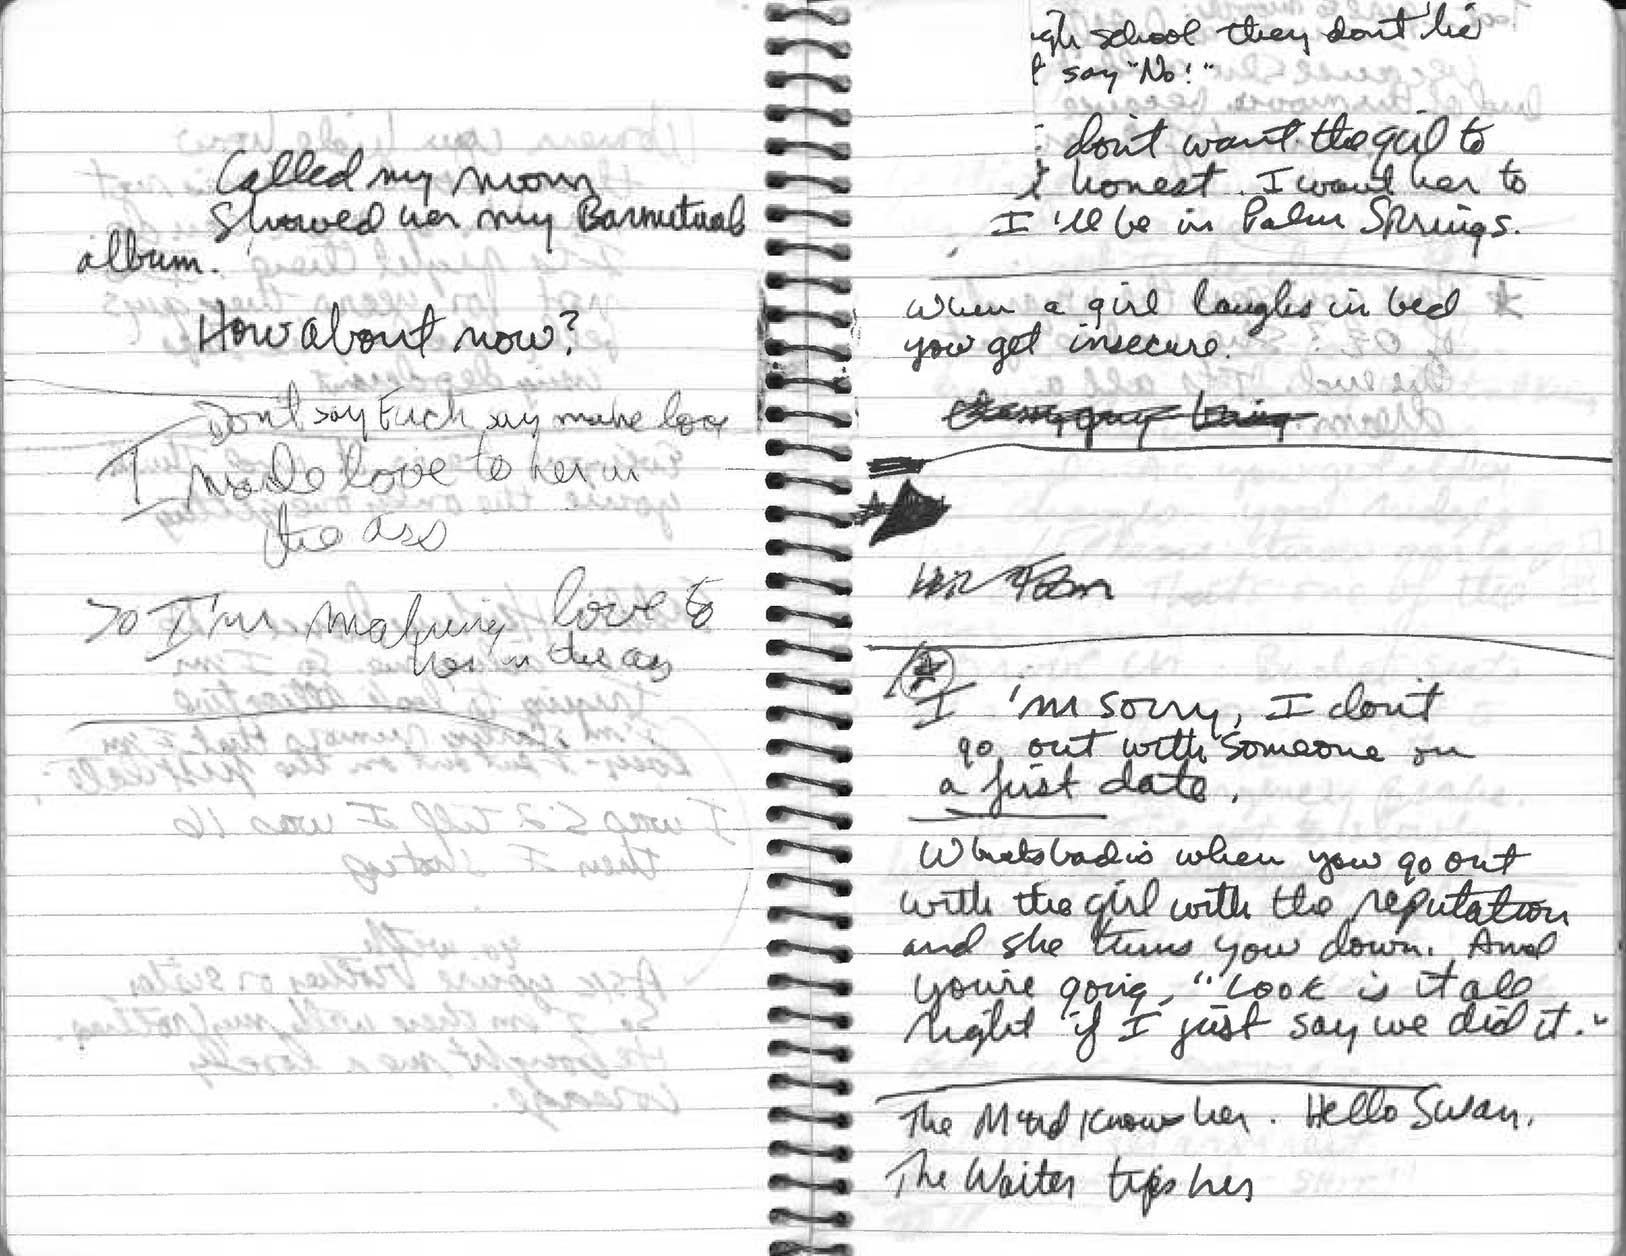 Called my mom
Showed her my Barmitvah
album.
How about now?
Don't say Fuck say make love
I made love to her in
the ass
So I'm making love to
her in the ass
school they don't lie
say "No!"
don't want the girl to
honest. I want her to
I'll be in Palm Springs.
When a girl laughs in bed
you get insecure.
I'm sorry, I don't
go out with someone on
a first date.
Whats bad is when you go out
with the girl with the reputation
and she turns you down. And
you're going, "Look is it all
right if I just say we did it."
The Maid knows her. Hello Susan.
The Waiter tips her